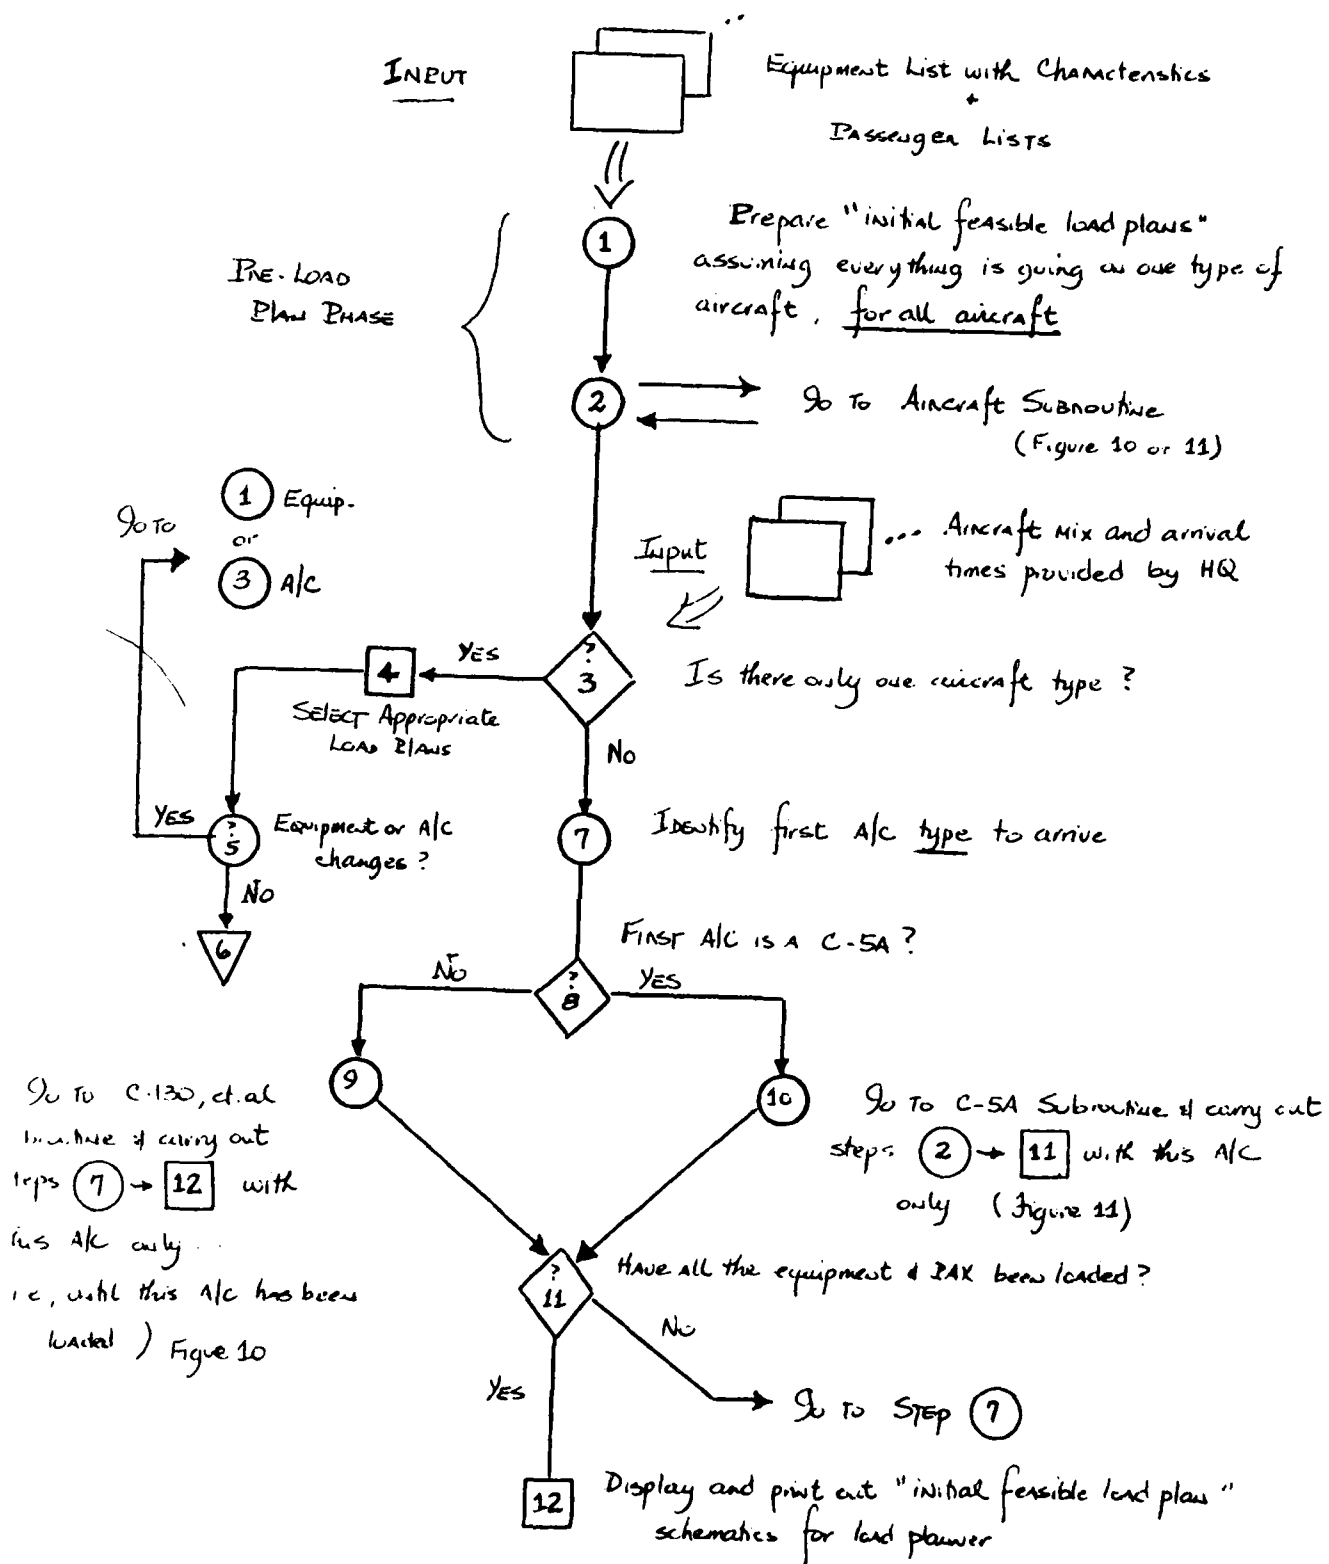 INPUT
Equipment List with Characteristics
+
Passenger Lists
1
Prepare "initial feasible load plans"
assuming everything is going on one type of
aircraft, for all aircraft
PRE-LOAD
PLAN PHASE
2
Go To Aircraft Subroutine
(Figure 10 or 11)
Go To
1 Equip.
or
3 A/C
Input
... Aircraft mix and arrival
times provided by HQ
? 3
Is there only one aircraft type?
YES
4
Select Appropriate
Load Plans
No
YES
? 5
Equipment or A/C
changes?
No
6
7
Identify first A/C type to arrive
First A/C is a C-5A?
? 8
No
YES
9
10
Go To C-130, et.al
& carry out
7 → 12 with
A/C only..
until this A/C has been
loaded ) Figure 10
Go To C-5A Subroutine & carry out
steps 2 → 11 with this A/C
only (Figure 11)
? 11
Have all the equipment & PAX been loaded?
No
YES
Go To Step 7
12
Display and print out "initial feasible load plan"
schematics for load planner